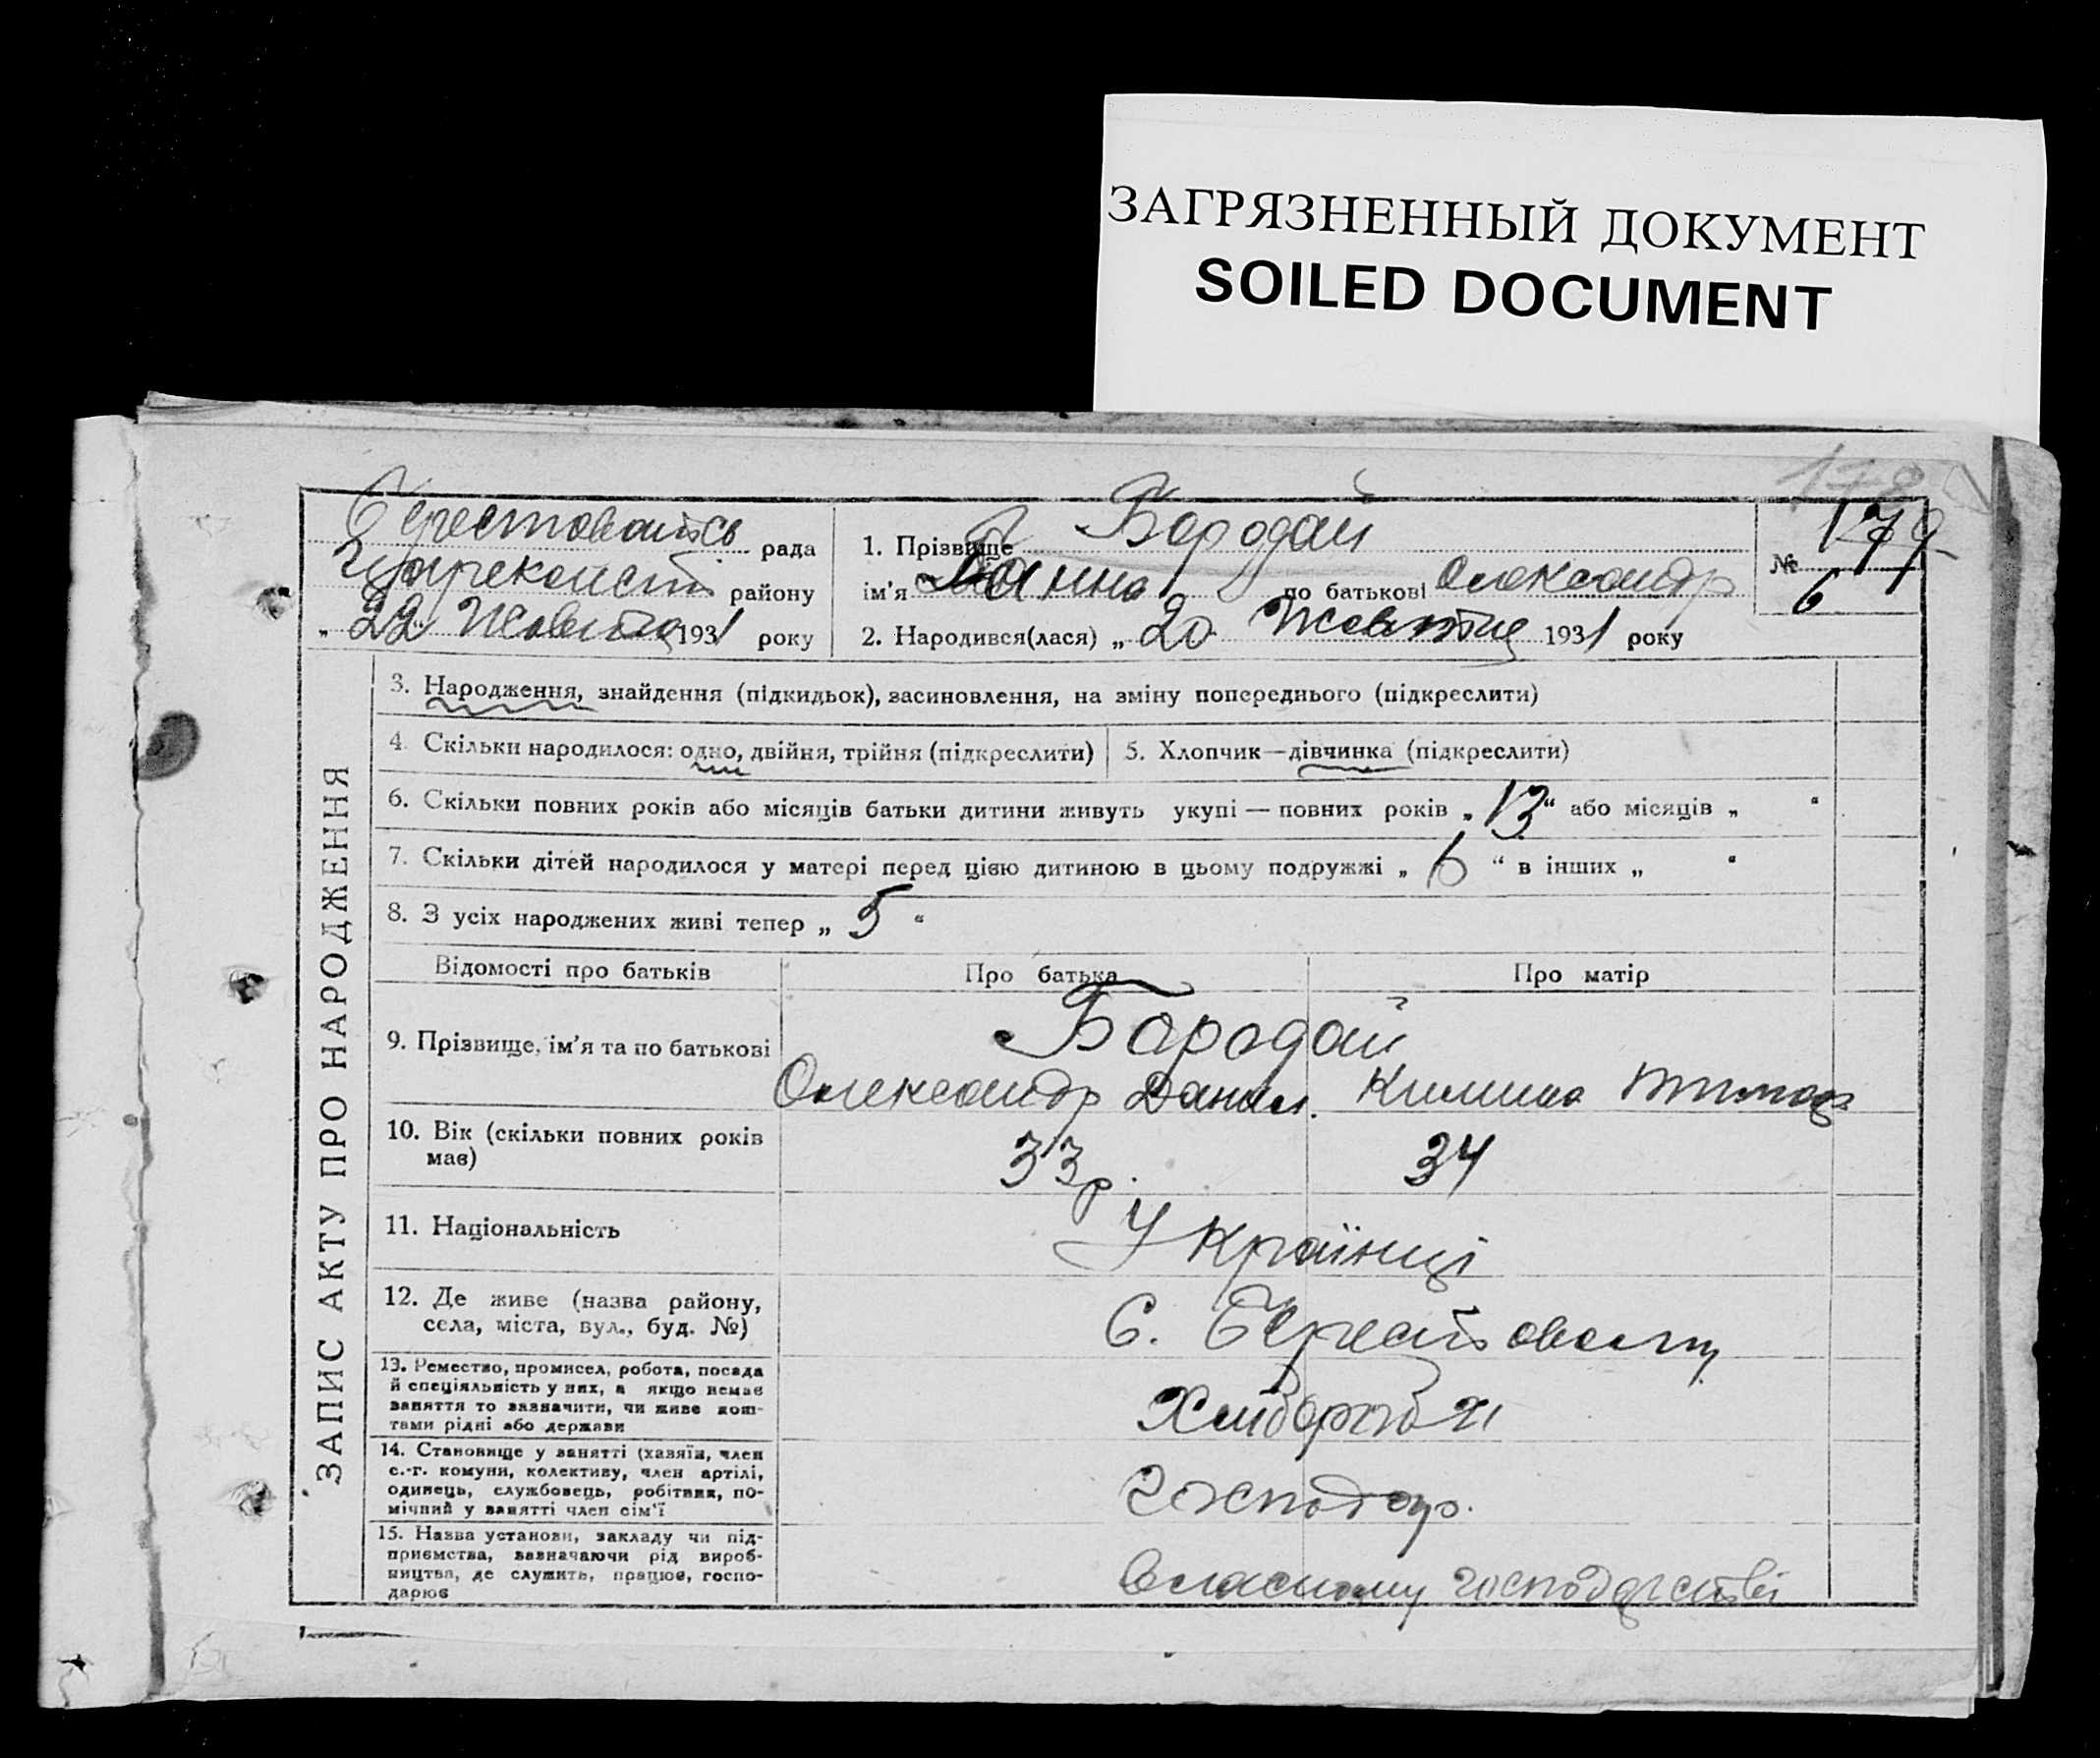 ЗАГРЯЗНЕННЫЙ ДОКУМЕНТ
SOILED DOCUMENT
рада
району
„ 22 Жовтня 1931 року
1. Прізвище Бородай
ім'я Ганна по батькові Олександр
2. Народився(лася) „ 20 Жовтня 1931 року
№
179
6
ЗАПИС АКТУ ПРО НАРОДЖЕННЯ
3. Народження, знайдення (підкидьок), засиновлення, на зміну попереднього (підкреслити)
4. Скільки народилося: одно, двійня, трійня (підкреслити)
5. Хлопчик—дівчинка (підкреслити)
6. Скільки повних років або місяців батьки дитини живуть укупі — повних років „ 13 “ або місяців „ “
7. Скільки дітей народилося у матері перед цією дитиною в цьому подружжі „ 6 “ в інших „ “
8. З усіх народжених живі тепер „ 5 “
Відомості про батьків Про батька Про матір
9. Прізвище, ім'я та по батькові
Бородай
Олександр Данил. Килина
10. Вік (скільки повних років
має)
33 р. 34
11. Національність
Українці
12. Де живе (назва району,
села, міста, вул., буд. №)
С.
13. Ремество, промисел, робота, посада
й спеціяльність у них, а якщо немає
заняття то зазначити, чи живе кош-
тами рідні або держави
Хлібороби
14. Становище у занятті (хазяїн, член
с.-г. комуни, колективу, член артілі,
одинець, службовець, робітник, по-
мічний у занятті член сім'ї
Господар.
15. Назва установи, закладу чи під-
приємства, зазначаючи рід вироб-
ництва, де служить, працює, госпо-
дарює
власному господарстві